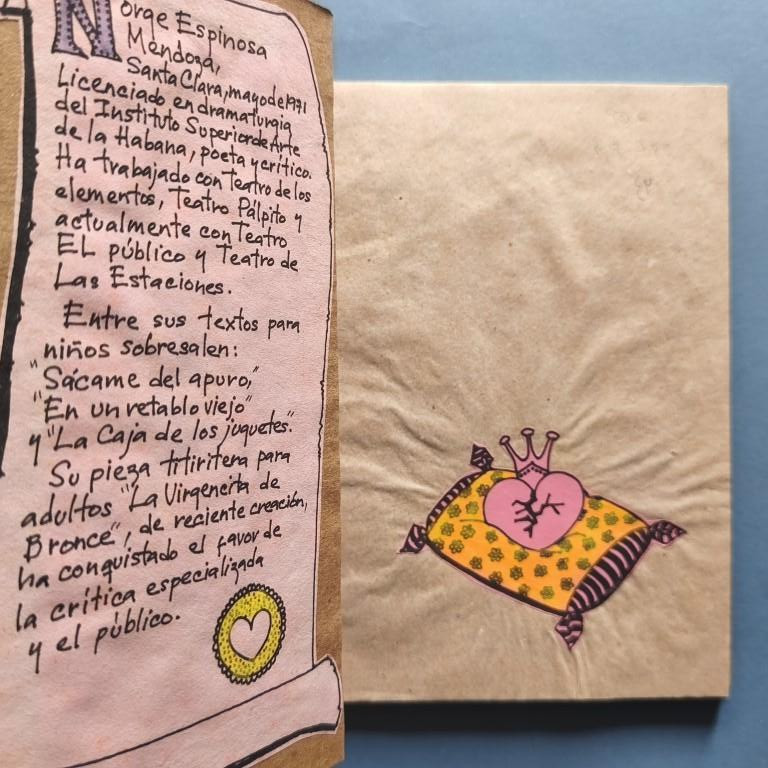 Norge Espinosa
Mendoza,
Santa Clara, mayo de 1971
Licenciado en dramaturgia
del Instituto Superior de Arte
de la Habana, poeta y crítico.
Ha trabajado con Teatro de los
elementos, Teatro Pálpito y
actualmente con Teatro
EL público y Teatro de
Las Estaciones.
Entre sus textos para
niños sobresalen:
"Sácame del apuro,"
"En un retablo viejo"
y "La Caja de los juguetes".
Su pieza titiritera para
adultos "La Virgencita de
Bronce", de reciente creación,
ha conquistado el favor de
la crítica especializada
y el público.